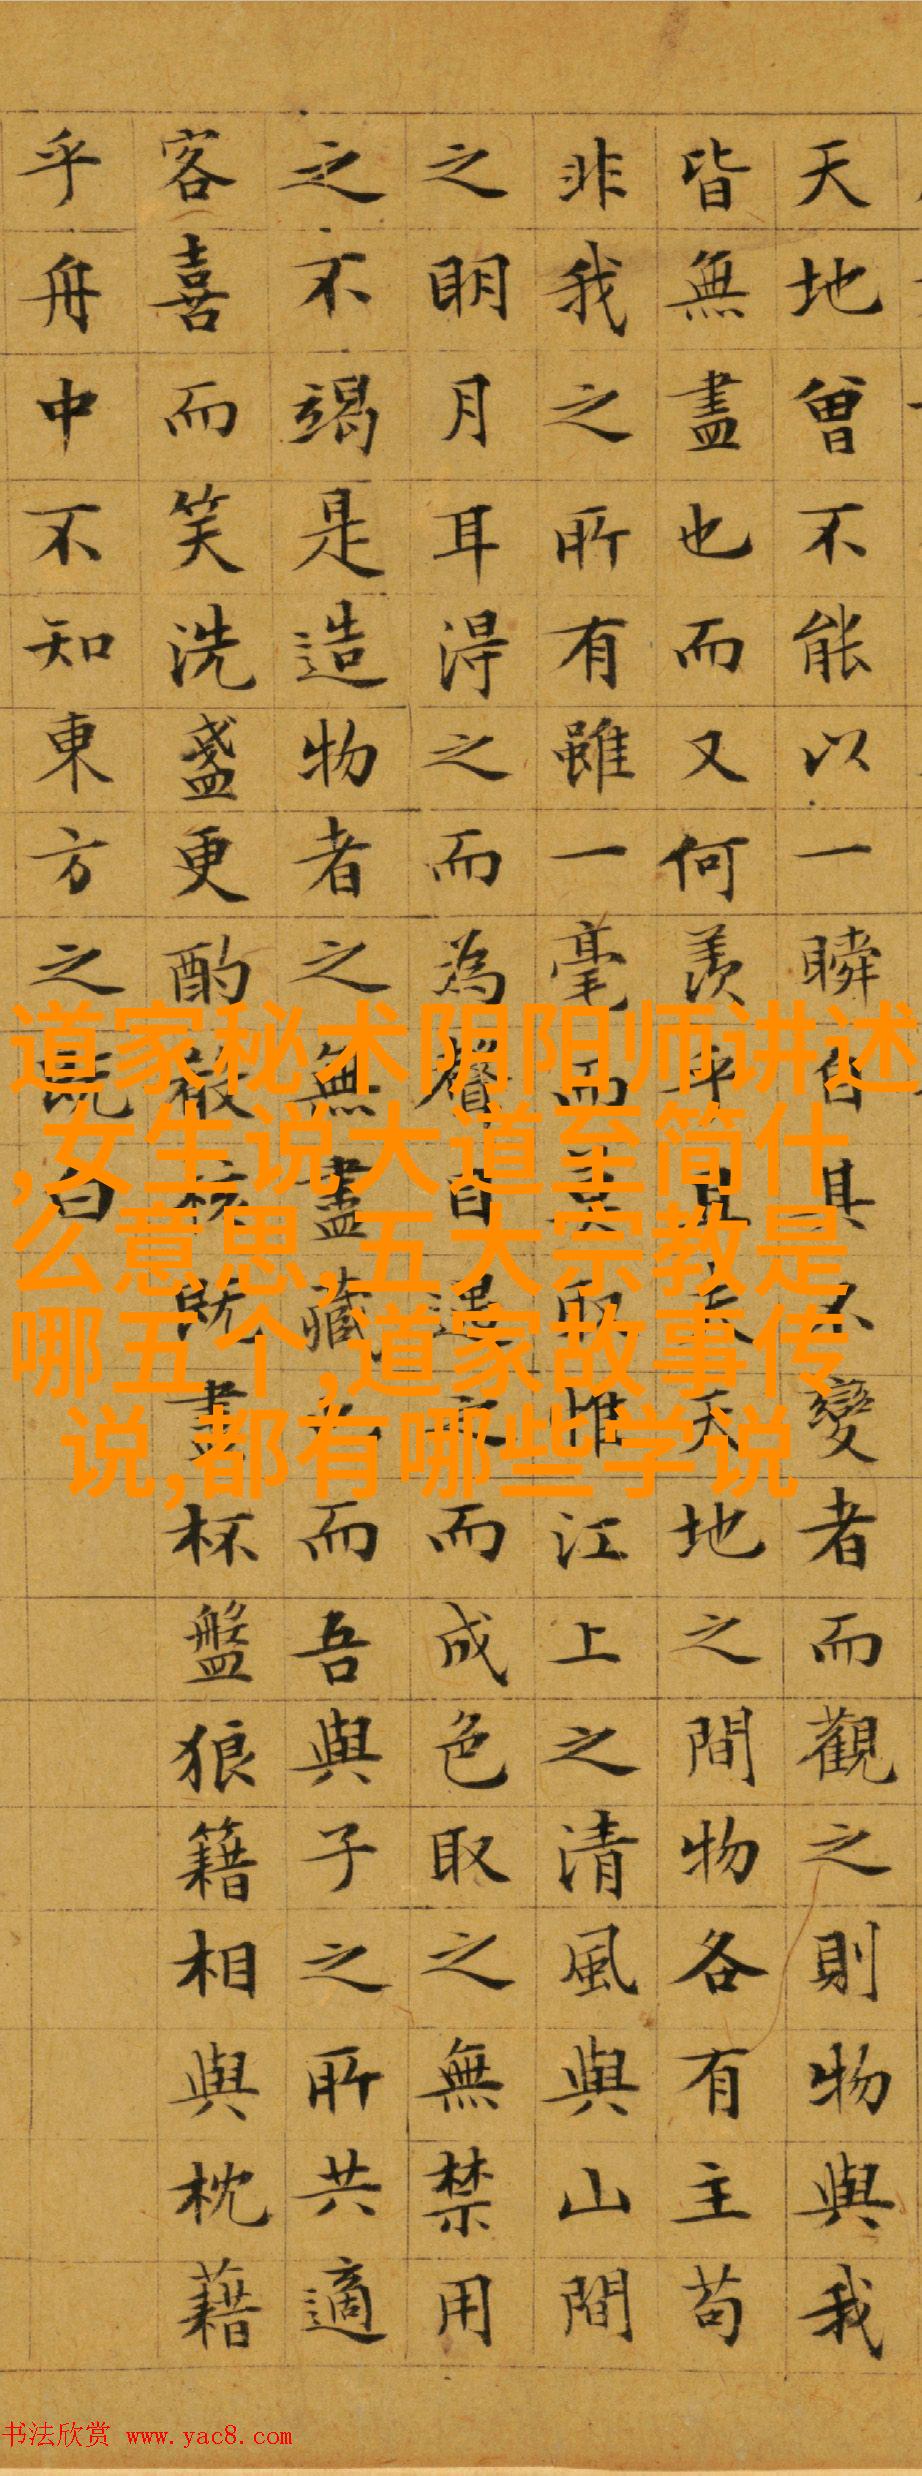 天地曾不能以一瞬自其不變者而觀之則物與我
皆無盡也而又何羨乎且夫天地之間物各有主苟
非我之所有雖一毫而莫取惟江上之清風與山間
之明月耳得之而為聲目遇之而成色取之無禁用
之不竭是造物者之無盡藏也而吾與子之所共適
客喜而笑洗盞更酌殽核既盡杯盤狼籍相與枕藉
乎舟中不知東方之既白
道家秘术阴阳师讲述
,女生说大道至简什
么意思,五大宗教是
哪五个,道家故事传
说,都有哪些学说
书法欣赏 www.yac8.com